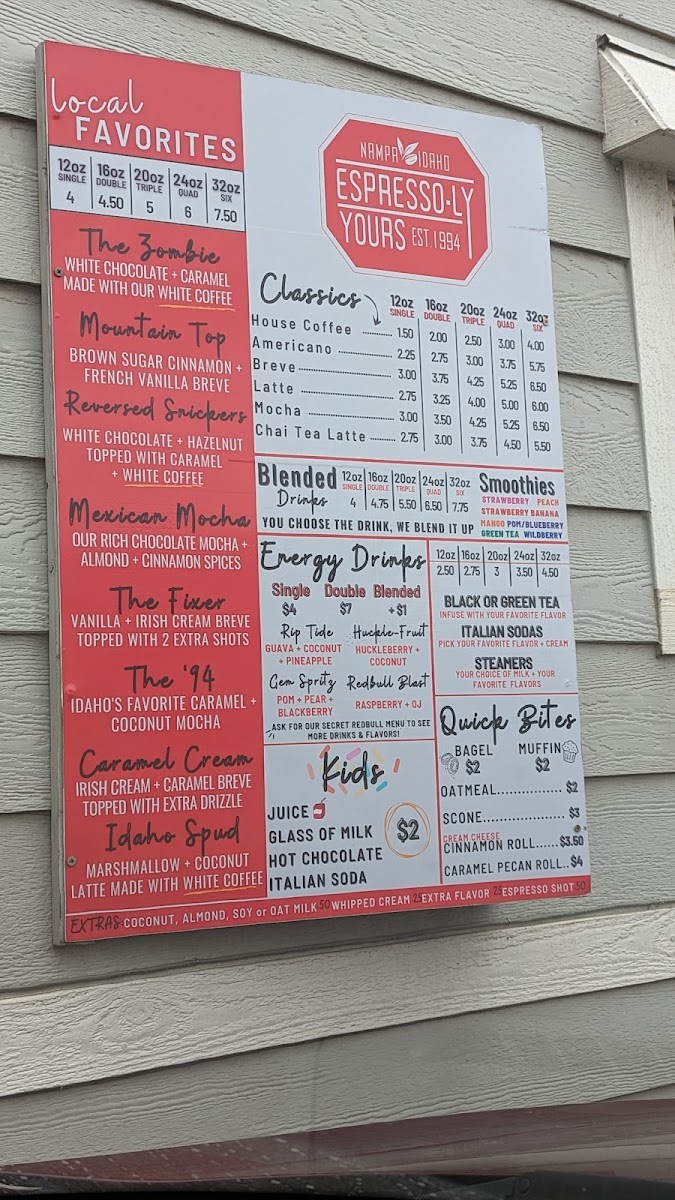 local
FAVORITES
12oz 16oz 20oz 24oz 32oz
SINGLE DOUBLE TRIPLE QUAD SIX
4 4.50 5 6 7.50
The Zombie
WHITE CHOCOLATE + CARAMEL
MADE WITH OUR WHITE COFFEE
Mountain Top
BROWN SUGAR CINNAMON +
FRENCH VANILLA BREVE
Reversed Snickers
WHITE CHOCOLATE + HAZELNUT
TOPPED WITH CARAMEL
+ WHITE COFFEE
Mexican Mocha
OUR RICH CHOCOLATE MOCHA +
ALMOND + CINNAMON SPICES
The Fixer
VANILLA + IRISH CREAM BREVE
TOPPED WITH 2 EXTRA SHOTS
The '94
IDAHO'S FAVORITE CARAMEL +
COCONUT MOCHA
Caramel Cream
IRISH CREAM + CARAMEL BREVE
TOPPED WITH EXTRA DRIZZLE
Idaho Spud
MARSHMALLOW + COCONUT
LATTE MADE WITH WHITE COFFEE
NAMPA IDAHO
ESPRESSO-LY
YOURS EST. 1994
Classics
12oz 16oz 20oz 24oz 32oz
SINGLE DOUBLE TRIPLE QUAD SIX
House Coffee 1.50 2.00 2.50 3.00 4.00
Americano 2.25 2.75 3.00 3.75 5.75
Breve 3.00 3.75 4.25 5.25 6.50
Latte 2.75 3.25 4.00 5.00 6.00
Mocha 3.00 3.50 4.25 5.25 6.50
Chai Tea Latte 2.75 3.00 3.75 4.50 5.50
Blended
Drinks
12oz 16oz 20oz 24oz 32oz
SINGLE DOUBLE TRIPLE QUAD SIX
4 4.75 5.50 6.50 7.75
YOU CHOOSE THE DRINK, WE BLEND IT UP
Smoothies
STRAWBERRY PEACH
STRAWBERRY BANANA
MANGO POM/BLUEBERRY
GREEN TEA WILDBERRY
Energy Drinks
Single Double Blended
$4 $7 +$1
Rip Tide
GUAVA + COCONUT
+ PINEAPPLE
Huckle-Fruit
HUCKLEBERRY +
COCONUT
Gem Spritz
POM + PEAR +
BLACKBERRY
Redbull Blast
RASPBERRY + OJ
ASK FOR OUR SECRET REDBULL MENU TO SEE
MORE DRINKS & FLAVORS!
12oz 16oz 20oz 24oz 32oz
2.50 2.75 3 3.50 4.50
BLACK OR GREEN TEA
INFUSE WITH YOUR FAVORITE FLAVOR
ITALIAN SODAS
PICK YOUR FAVORITE FLAVOR + CREAM
STEAMERS
YOUR CHOICE OF MILK + YOUR
FAVORITE FLAVORS
Kids
JUICE
GLASS OF MILK
HOT CHOCOLATE
ITALIAN SODA
$2
Quick Bites
BAGEL MUFFIN
$2 $2
OATMEAL................ $2
SCONE.................. $3
CREAM CHEESE
CINNAMON ROLL......$3.50
CARAMEL PECAN ROLL..$4
EXTRAS-COCONUT, ALMOND, SOY or OAT MILK .50 WHIPPED CREAM .25 EXTRA FLAVOR .25 ESPRESSO SHOT .50